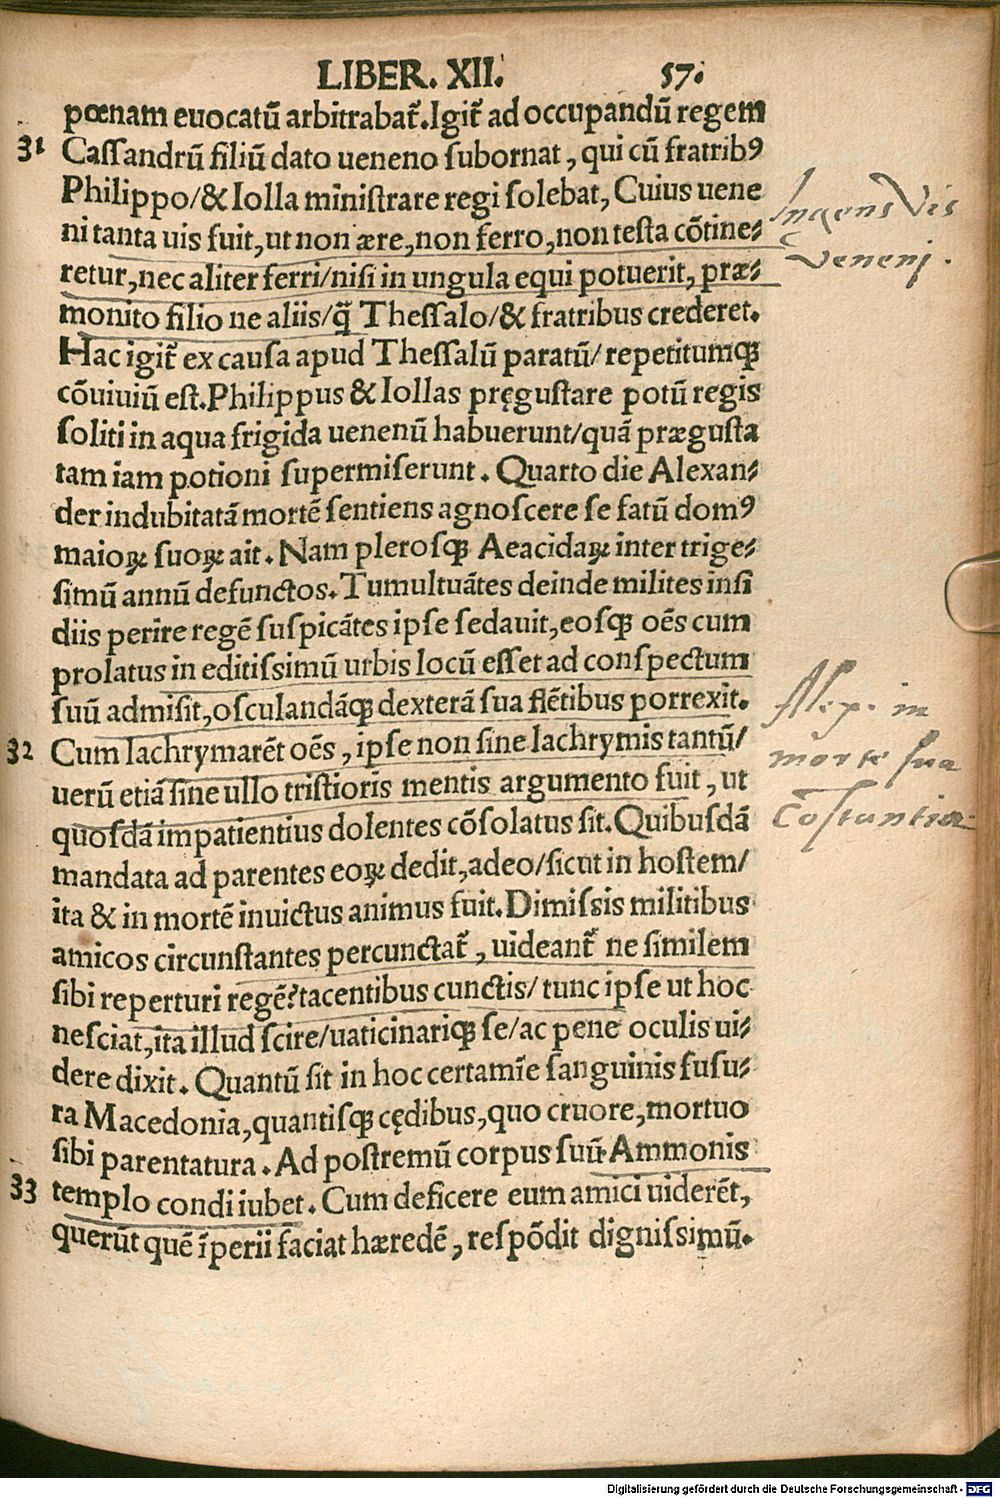 LIBER. XII. 57.
pœnam euocatū arbitrabat᷑. Igit᷑ ad occupandū regem
31 Caſſandrū filiū dato ueneno ſubornat, qui cū fratribꝰ
Philippo/& Iolla miniſtrare regi ſolebat, Cuius uene
ni tanta uis fuit, ut non ære, non ferro, non teſta cōtine⸗
retur, nec aliter ferri/niſi in ungula equi potuerit, præ⸗
monito filio ne aliis/q̃ Theſſalo/& fratribus crederet.
Hac igit᷑ ex cauſa apud Theſſalū paratū/ repetitumqꝫ
cōuiuiū eſt. Philippus & Iollas pręguſtare potū regis
ſoliti in aqua frigida uenenū habuerunt/quā præguſta
tam iam potioni ſupermiſerunt. Quarto die Alexan⸗
der indubitatā mortē ſentiens agnoſcere ſe fatū domꝰ
maioꝝ ſuoꝝ ait. Nam pleroſqꝫ Aeacidaꝝ inter trige⸗
ſimū annū defunctos. Tumultuātes deinde milites inſi
diis perire regē ſuſpicātes ipſe ſedauit, eoſqꝫ oēs cum
prolatus in editiſſimū urbis locū eſſet ad conſpectum
ſuū admiſit, oſculandāqꝫ dexterā ſua flētibus porrexit.
32 Cum lachrymarēt oēs, ipſe non ſine lachrymis tantū/
uerū etiā ſine ullo triſtioris mentis argumento fuit, ut
quoſdā impatientius dolentes cōſolatus ſit. Quibuſdā
mandata ad parentes eoꝝ dedit, adeo/ſicut in hoſtem/
ita & in mortē inuictus animus fuit. Dimiſsis militibus
amicos circunſtantes percunctat᷑, uideant᷑ ne ſimilem
ſibi reperturi regē? tacentibus cunctis/ tunc ipſe ut hoc
neſciat, ita illud ſcire/uaticinariqꝫ ſe/ac pene oculis ui⸗
dere dixit. Quantū ſit in hoc certamīe ſanguinis fuſu⸗
ra Macedonia, quantiſqꝫ cędibus, quo cruore, mortuo
ſibi parentatura. Ad poſtremū corpus ſuū Ammonis
33 templo condi iubet. Cum deficere eum amici uiderēt,
querūt quē īperii faciat hæredē, reſpōdit digniſſimū.
Ingens Vis
Venenj.
Alex. in
morte ſua
Coſtantia.
Digitalisierung gefördert durch die Deutsche Forschungsgemeinschaft - DFG